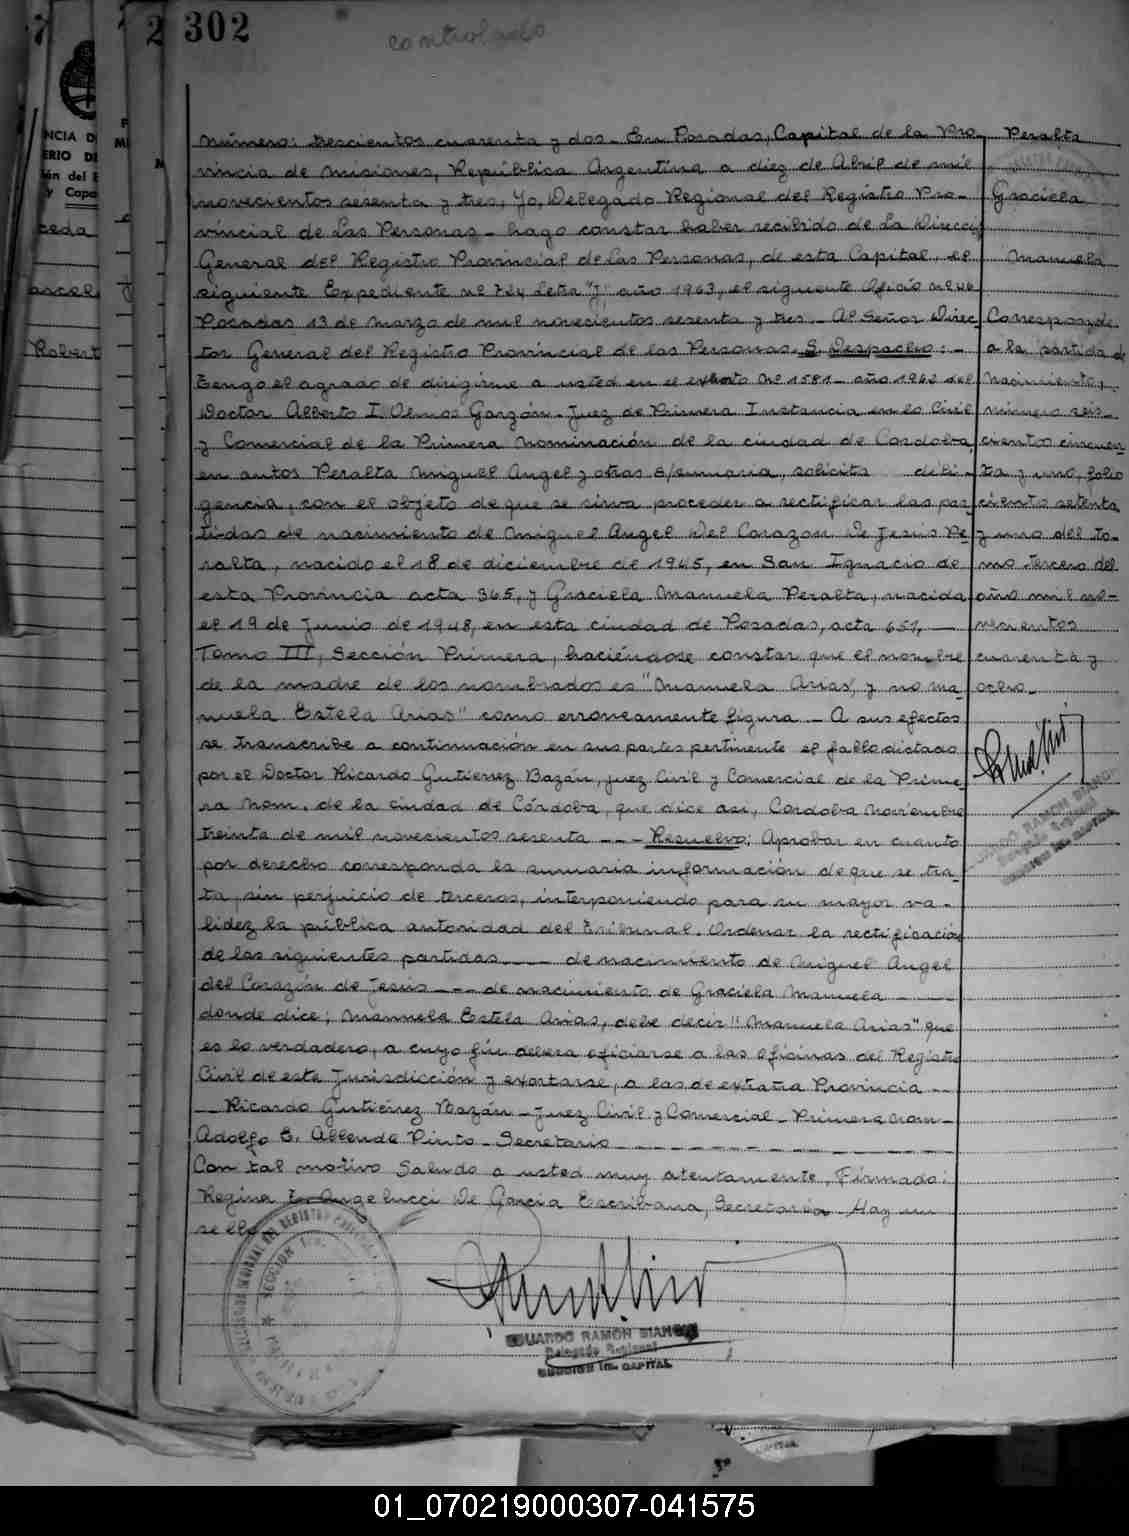 302
controlado
Número: trescientos cuarenta y dos - En Posadas, Capital de la Pro-
vincia de Misiones, República Argentina a diez de Abril de mil
novecientos sesenta y tres, Yo, Delegado Regional del Registro Pro-
vincial de Las Personas - hago constar haber recibido de La Direcci
General del Registro Provincial de las Personas, de esta Capital, el
siguiente Expediente nº 724 Letra "J", año 1963, el siguiente Oficio nº 46
Posadas 13 de Marzo de mil novecientos sesenta y tres - Al Señor Direc-
tor General del Registro Provincial de las Personas. S. Despacho: -
Tengo el agrado de dirigirme a usted en el exhorto Nº 1581 - año 1962 del
Doctor Alberto I. Olmos Garzón - Juez de Primera Instancia en lo Civil
y Comercial de la Primera Nominación de la ciudad de Cordoba,
en autos Peralta Miguel Angel y otras s/sumaria, solicita dili-
gencia, con el objeto de que se sirva proceder a rectificar las par-
tidas de nacimiento de Miguel Angel Del Corazon De Jesús Pe-
ralta, nacido el 18 de diciembre de 1945, en San Ignacio de
esta Provincia acta 365, y Graciela Manuela Peralta, nacida
el 19 de Junio de 1948, en esta ciudad de Posadas, acta 651, -
Tomo III, Sección Primera, haciéndose constar que el nombre
de la madre de los nombrados es "Manuela Arias, y no Ma-
nuela Estela Arias" como erroneamente figura - A sus efectos
se transcribe a continuación en sus partes pertinente el fallo dictado
por el Doctor Ricardo Gutierrez Bazán, juez Civil y Comercial de la Prime-
ra Nom. de la ciudad de Córdoba, que dice asi, Cordoba Noviembre
treinta de mil novecientos sesenta --- Resuelvo: Aprobar en cuanto
por derecho corresponda la sumaria información de que se tra-
ta, sin perjuicio de terceros, interponiendo para su mayor va-
lidez la pública autoridad del Tribunal. Ordenar la rectificación
de las siguientes partidas --- de nacimiento de Miguel Angel
del Corazón de Jesús --- de nacimiento de Graciela Manuela ---
donde dice; Manuela Estela Arias, debe decir "Manuela Arias" que
es lo verdadero, a cuyo fin debera oficiarse a las oficinas del Registro
Civil de esta Jurisdicción y exortarse, a las de extraña Provincia --
-- Ricardo Gutiérrez Bazán - Juez Civil y Comercial - Primera Nom -
Adolfo E. Allende Pinto - Secretario
Con tal motivo Saludo a usted muy atentamente, Firmado:
Regina E. Angelucci De García Escribana, Secretaria - Hay un
sello
EDUARDO RAMON BIANCHI
Delegado Regional
SECCION 1ra. CAPITAL
Peralta
Graciela
Manuela
Corresponde
a la partida de
nacimiento,
número seis-
cientos cincuen-
ta y uno, folio
ciento setenta
y uno del to-
mo tercero del
año mil no-
vecientos
cuarenta y
ocho -
EDUARDO RAMON BIANCHI
Delegado Regional
SECCION 1ra. CAPITAL
01_070219000307-041575